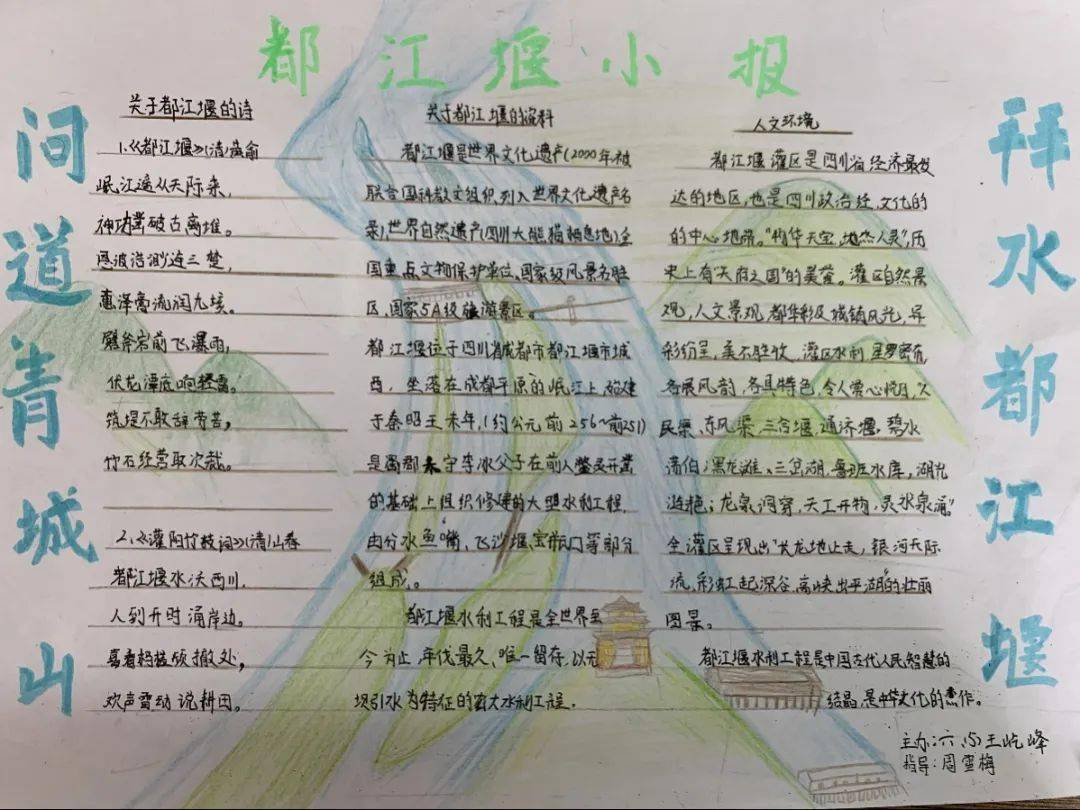 都江堰小报
问道青城山
关于都江堰的诗
1.《都江堰》(清)黄俞
岷江遥从天际来,
神功凿破古离堆。
恩波浩渺连三楚,
惠泽膏流润九垓。
劈斧岩前飞瀑雨,
伏龙潭底响轻雷。
筑堤不敢辞劳苦,
竹石经营取次裁。
2.《灌阳竹枝词》(清)山春
都江堰水沃西川,
人到开时涌岸边。
喜看杩槎频撤处,
欢声雷动说耕田。
关于都江堰的资料
都江堰是世界文化遗产(2000年被
联合国科教文组织列入世界文化遗产名
录),世界自然遗产(四川大熊猫栖息地)全
国重点文物保护单位、国家级风景名胜
区,国家5A级旅游景区。
都江堰位于四川省成都市都江堰市城
西,坐落在成都平原的岷江上,始建
于秦昭王末年,(约公元前256~前251)
是蜀郡太守李冰父子在前人鳖灵开凿
的基础上组织修建的大型水利工程,
由分水鱼嘴、飞沙堰、宝瓶口等部分
组成。
都江堰水利工程是全世界至
今为止,年代最久、唯一留存、以无
坝引水为特征的宏大水利工程.
人文环境
都江堰灌区是四川省经济最发
达的地区,也是四川政治经、文化的
的中心地带。"物华天宝,地杰人灵",历
史上有"天府之国"的美誉。灌区自然景
观,人文景观,都华彩及城镇风光,异
彩纷呈,美不胜收,灌区水利,星罗密布,
各展风韵,各具特色,令人赏心悦目,人
民渠、东风渠、三合堰,通济堰,碧水
潇伯;黑龙滩、三岔湖、鲁班水库,湖光
涟艳;龙泉洞穿,天工开物,灵水泉涌"
全灌区呈现出"长龙地上走,银河天际
流,彩虹起深谷,高峡出平湖"的壮丽
图景。
都江堰水利工程是中国古代人民智慧的
结晶,是中华文化的杰作。
拜水都江堰
主办:六(5)王屹峰
指导:周雪梅